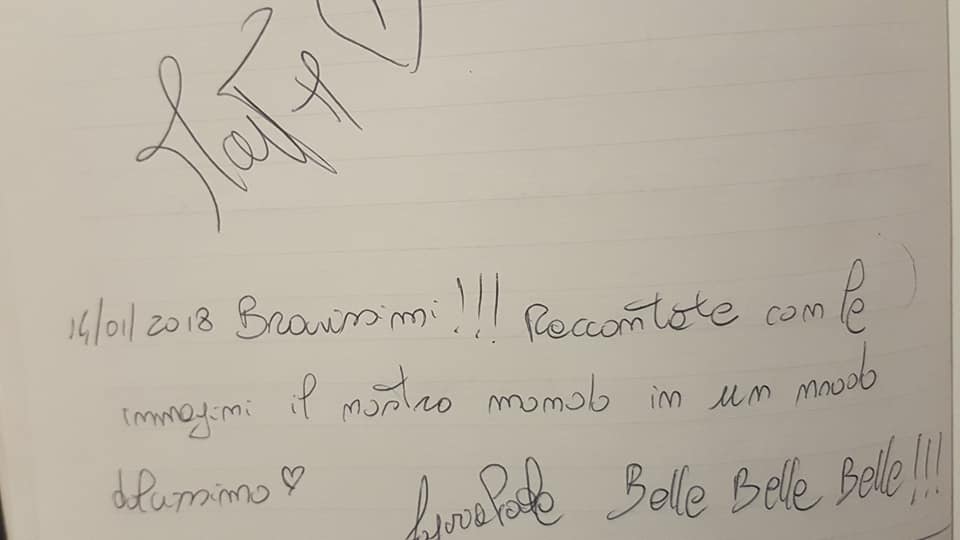 14/01/2018 Bravissimi!!! Raccontate con le
immagini il nostro mondo in un modo
dolcissimo ♡
Belle Belle Belle!!!